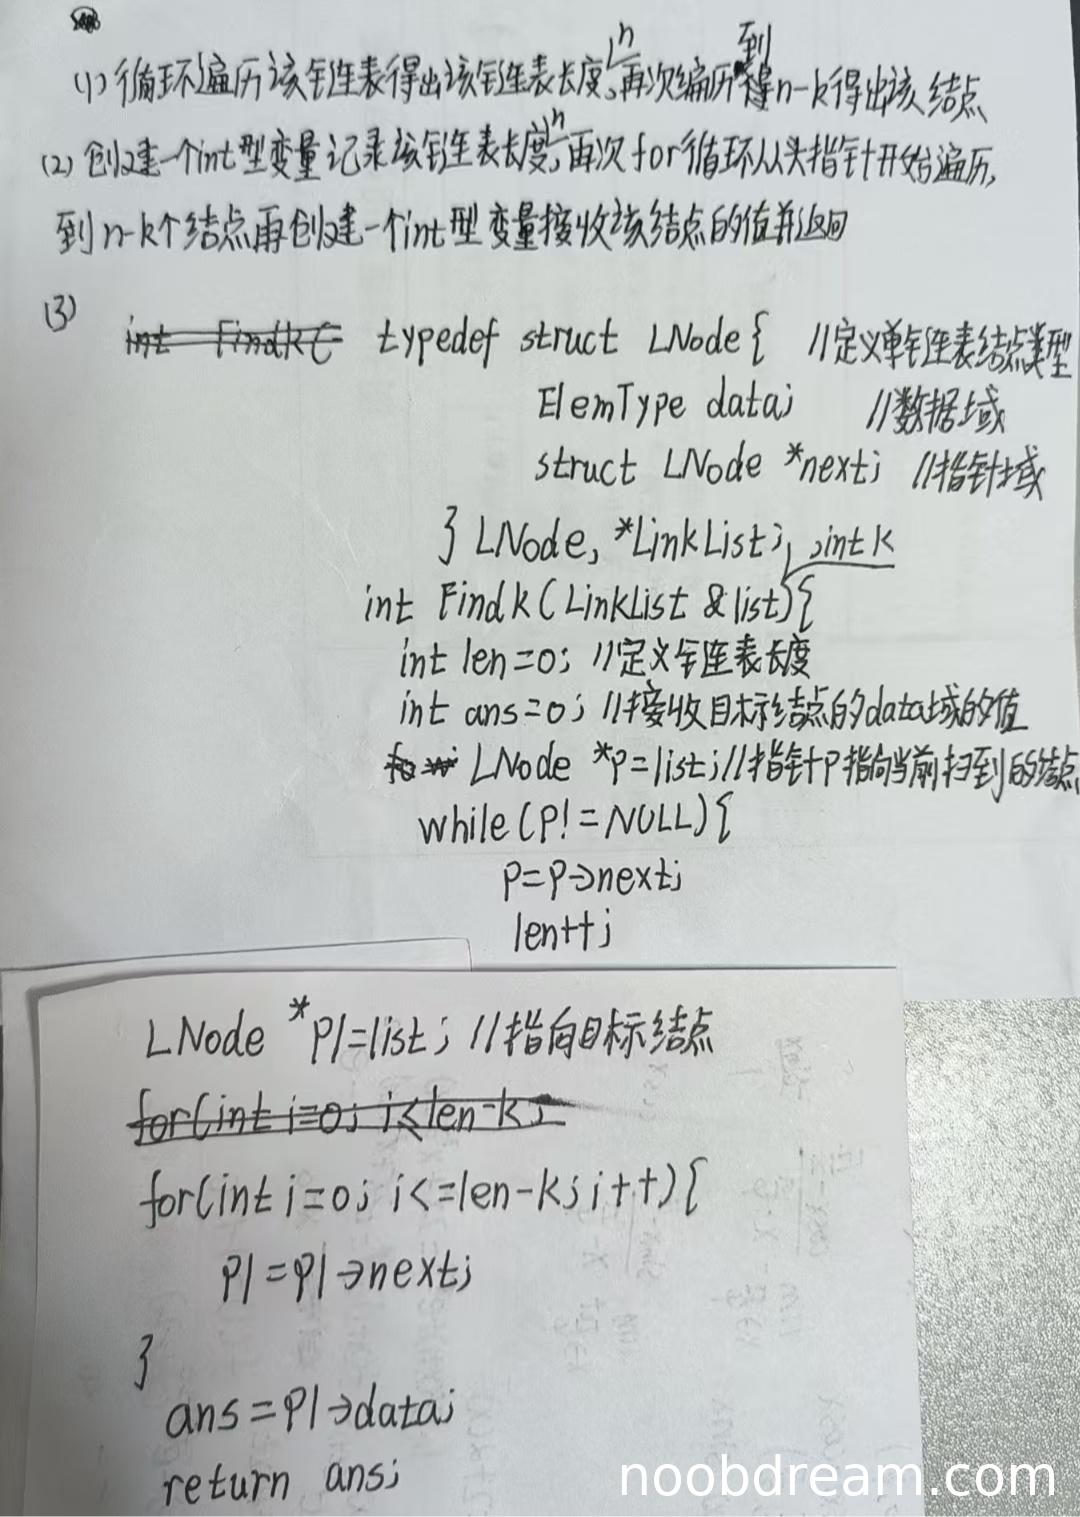 (1) 循环遍历该链表得出该链表长度n。再次编历到n-k得出该结点
(2) 创建一个int型变量记录该链表长度n,再次for循环从头指针开始遍历,
到n-k个结点再创建一个int型变量接收该结点的值并返回
(3) int Findk( typedef struct LNode{ //定义单链表结点类型
ElemType data; //数据域
struct LNode *next; //指针域
} LNode, *LinkList;
int Findk(LinkList &list, int k){
int len=0; //定义链表长度
int ans=0; //接收目标结点的data域的值
LNode *p=list; //指针p指向当前扫到的结点
while(p!=NULL){
p=p->next;
len++;
LNode *p1=list; //指向目标结点
for(int i=0; i<len-k;
for(int i=0; i<=len-k; i++){
p1=p1->next;
}
ans=p1->data;
return ans;
noobdream.com